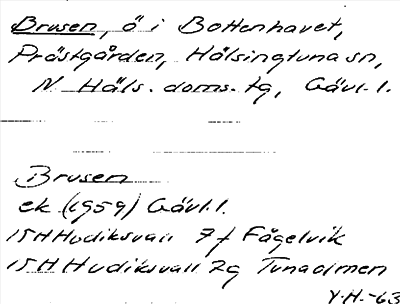 Brusen, ö i Bottenhavet,
Prästgården, Hälsingtuna sn,
N Häls. doms. tg, Gävl. l.
Brusen
ek (1959) Gävl. l.
15H Hudiksvall 7f Fågelvik
15H Hudiksvall 7g Tunaolmen
Y.H.-63